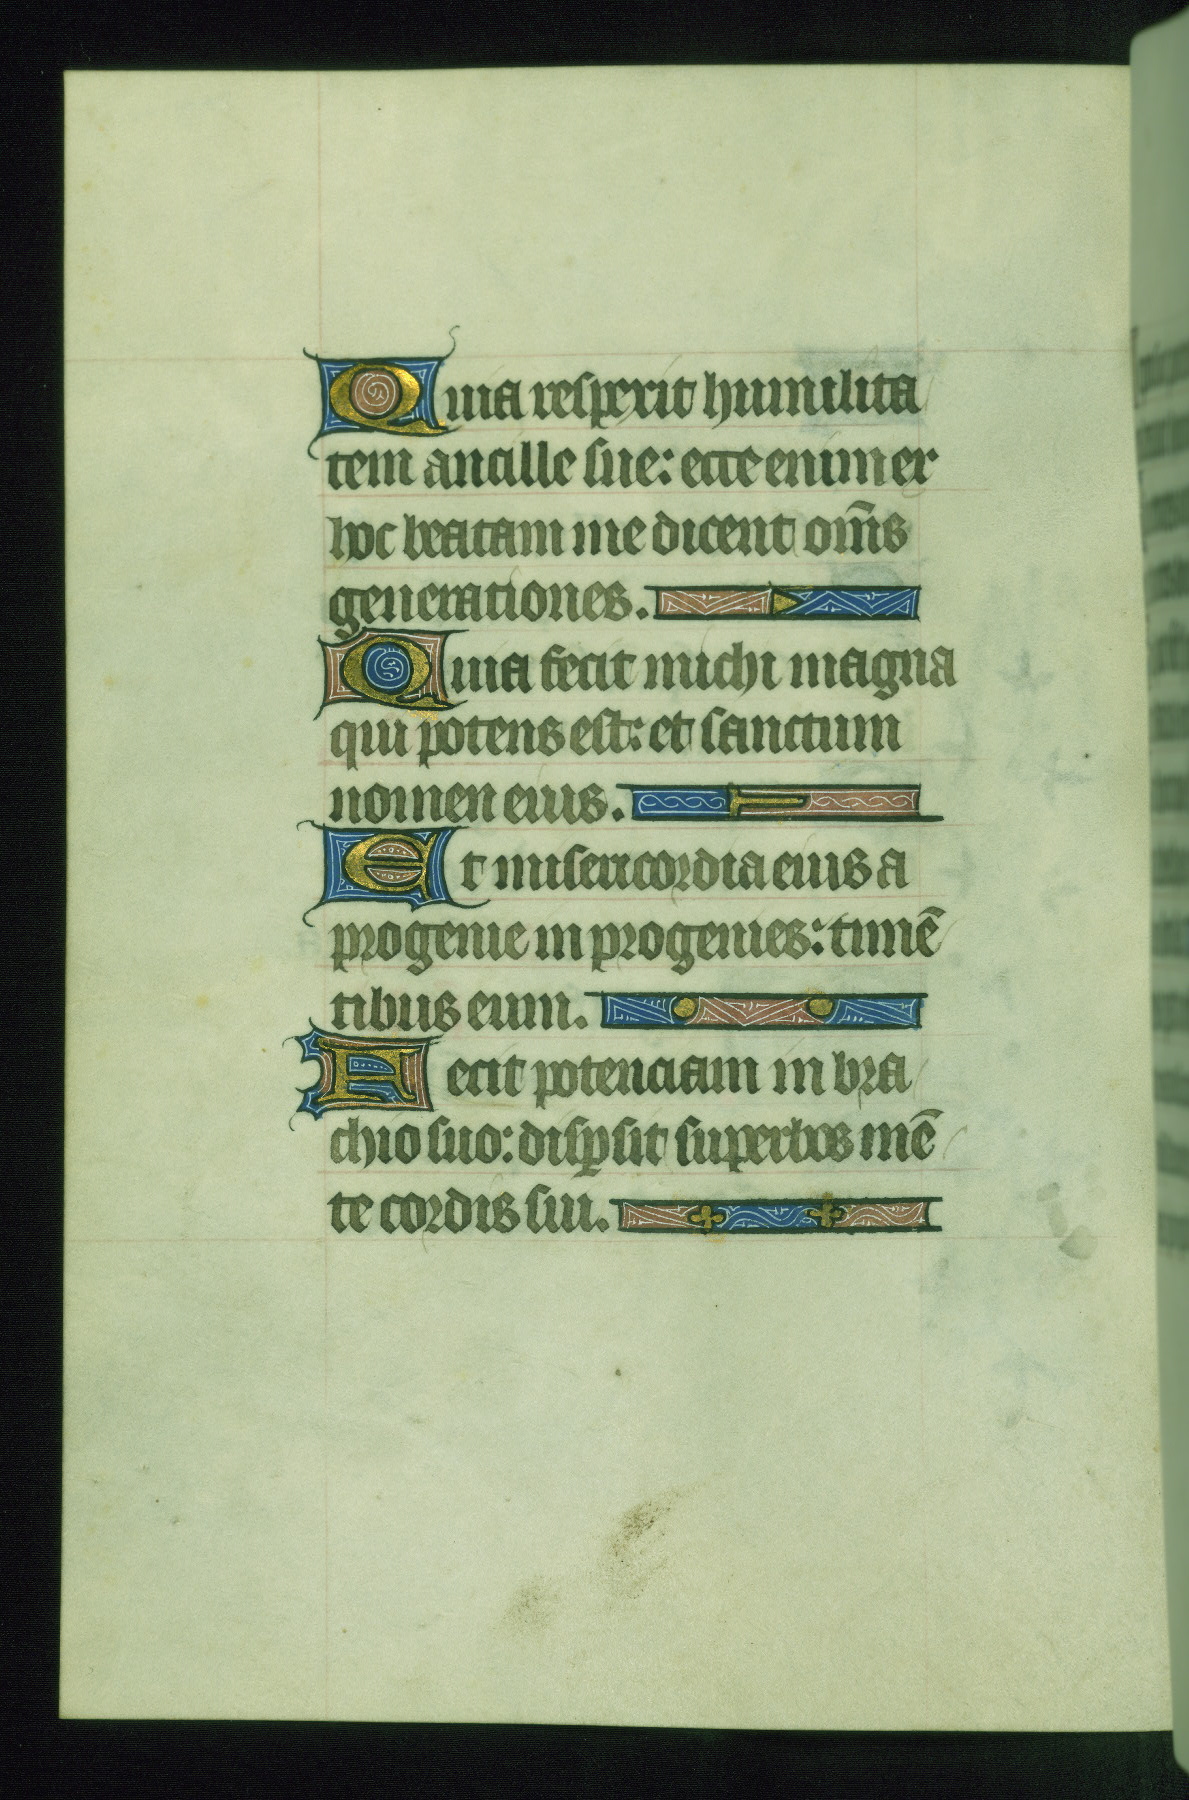 Quia respexit humilita
tem ancille sue: ecce enim ex
hoc beatam me dicent om̅s
generationes.
Quia fecit michi magna
qui potens est: et sanctum
nomen eius.
Et misericordia eius a
progenie in progenies: timē
tibus eum.
Fecit potenciam in bra
chio suo: disꝑsit superbos mē
te cordis sui.